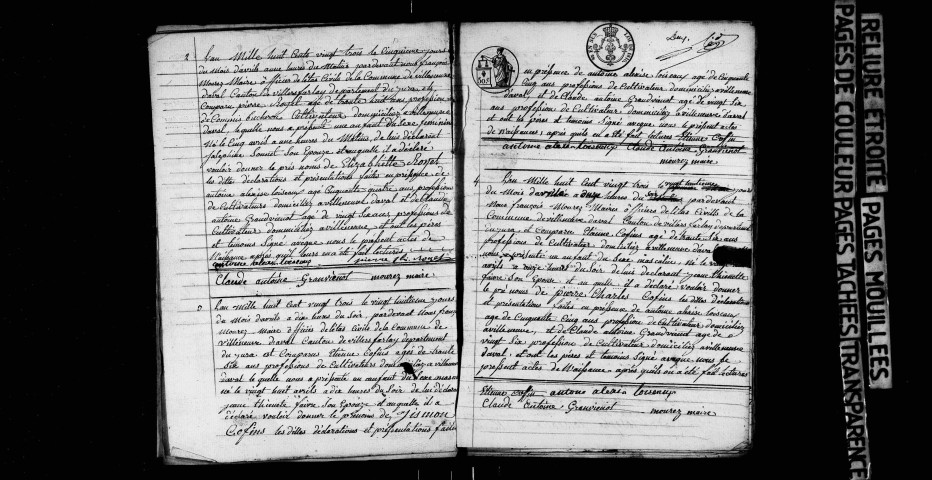 2
L'an Mille huit Cents vingt trois le Cinquieme jours
du Mois d'avrils a une heures du Matin pardevant nous françois
Mourez Maire officiers de l'etat Civile de la Commune de villeneuve
daval Canton de villersfarlay departement du jura est
Comparu pierre Rozet age de trante huit ans profession
Cultivateur domicilié a villeneuve
daval lequelle nous a présenté une enfant du Sexe feminin
né le Cinq avril a une heures du Matin, de lui déclarant
Son Epouze et auquelle il a déclaré
vouloir donner le prés noms de Elizabhette Rozet
les dittes déclarations et présentations faites en présence de
antoine alexise loiseaux age Cinquante quatre ans profession
de Cultivateur domiciliez a villeneuve daval et de Claude
antoine Grandvienot age de vingt Six ans profession de
Cultivateur domiciliez a villeneuve, et ont les péres
et temoins Signé avec nous le présent actes de
Naisance après qu'il leurs en a été fait lectures
antoine alexis loiseaux pierre Rozet
Claude Antoine Grauvienot mourez maire
3
L'an Mille huit Cent vingt trois le vingt huitieme jours
du Mois d'avrils a dix heures du Soir, pardevant Nous françois
Mourez Maire officiers de l'etat Civile de la Commune de
villeneuve daval Canton de villersfarlay departement
du jura est Comparus Etiene Cofins agés de trante
Six ans profession de Cultivateurs domiciliez a villeneuve
daval lequelle nous a présenté un enfant du Sexe masculin
né le vingt huit avrils a dix heures du Soir de lui déclarant
jeane thienette faivre Son Epouze et auquelle il a
déclaré vouloir donner le prénoms de Simmon
Cofins les dittes déclarations et présentations faites
en présence de antoine alexise loiseaux agé de Cinquante
Cinq ans profession de Cultivateur domiciliez a villeneuve
daval, et de Claude antoine Grandvienot age de vingt Six
ans profession de Cultivateur domiciliez a villeneuve daval
et ont les péres et temoins Signé avec nous le présent actes
de Naisances, après qu'ils en a été fait lectures Etiene Cofin
antoine alexis loiseaux Claude Antoine Grauvienot
mourez maire
4
L'an Mille huit Cent vingt trois le vingt huitieme jours
du Mois d'avrils a onze heures du Soir pardevant
Nous françois Mourez Maire officiers de l'etat Civille de la
Commune de villeneuve daval Canton de villersfarlay departement
du jura est Comparu Etiene Cofins age de trante Six ans
profession de Cultivateur domiciliez a villeneuve daval
nous a présenté un enfant du Sexe masculin né le
avrils a onze heures du Soir de lui déclarant jeane thienette
faivre Son Epouse et auquelle il a déclaré vouloir donner
le pré noms de pierre Charles Cofins les dittes déclarations
et présentations faites en présence de antoine alexise loiseaux
age de Cinquante Cinq ans profession de Cultivateur domiciliez
a villeneuve, et de Claude antoine Grandvienot age de
vingt Six profession de Cultivateur domiciliez a villeneuve
daval, et ont les péres et temoins Signé avec nous le
présent actes de Naisance après qu'ils en a été fait lectures
Etienne Cofin antoine alexis loiseaux
Claude Antoine Grauvienot mourez maire
RELIURE ETROITE PAGES MOUILLEES
PAGES DE COULEUR PAGES TACHEES TRANSPARENCE